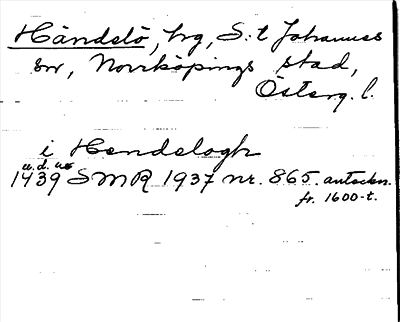 Händelö, hrg, S:t Johannes
sn, Norrköpings stad,
Österg. l.
i Hendelogh
u.d. as
1439 SMR 1937 nr. 865. anteckn.
fr. 1600-t.